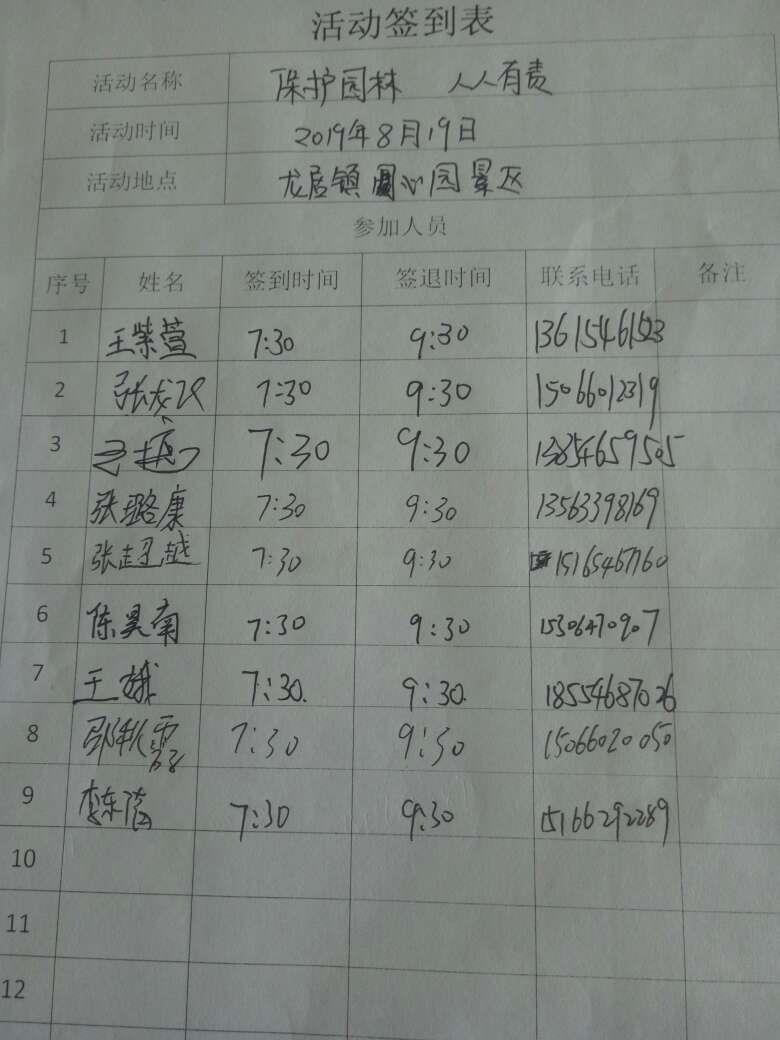 活动签到表
活动名称 保护园林 人人有责
活动时间 2019年8月19日
活动地点 龙居镇 心园景区
参加人员
序号 姓名 签到时间 签退时间 联系电话 备注
1 王紫萱 7:30 9:30 13615461523
2 张龙 7:30 9:30 15066012319
3 7:30 9:30 13854659505
4 张璐康 7:30 9:30 13563398169
5 张超越 7:30 9:30 15165467760
6 陈昊南 7:30 9:30 15306470907
7 王娥 7:30. 9:30. 18554687026
8 邵秋霞 7:30 9:30 15066020050
9 李东 7:30 9:30 15166292289
10
11
12